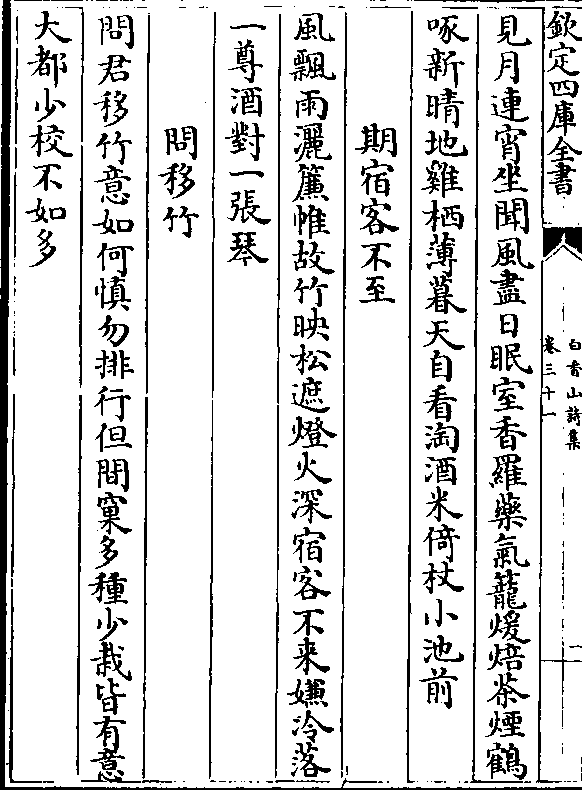 欽定四庫全書
白香山詩集
卷三十一
見月連宵坐聞風盡日眠室香羅藥氣籠煖焙茶煙鶴
啄新晴地雞栖薄暮天自看淘酒米倚杖小池前
期宿客不至
風飄雨灑簾帷故竹映松遮燈火深宿客不来嫌冷落
一尊酒對一張琴
問移竹
問君移竹意如何慎勿排行但間窠多種少栽皆有意
大都少校不如多